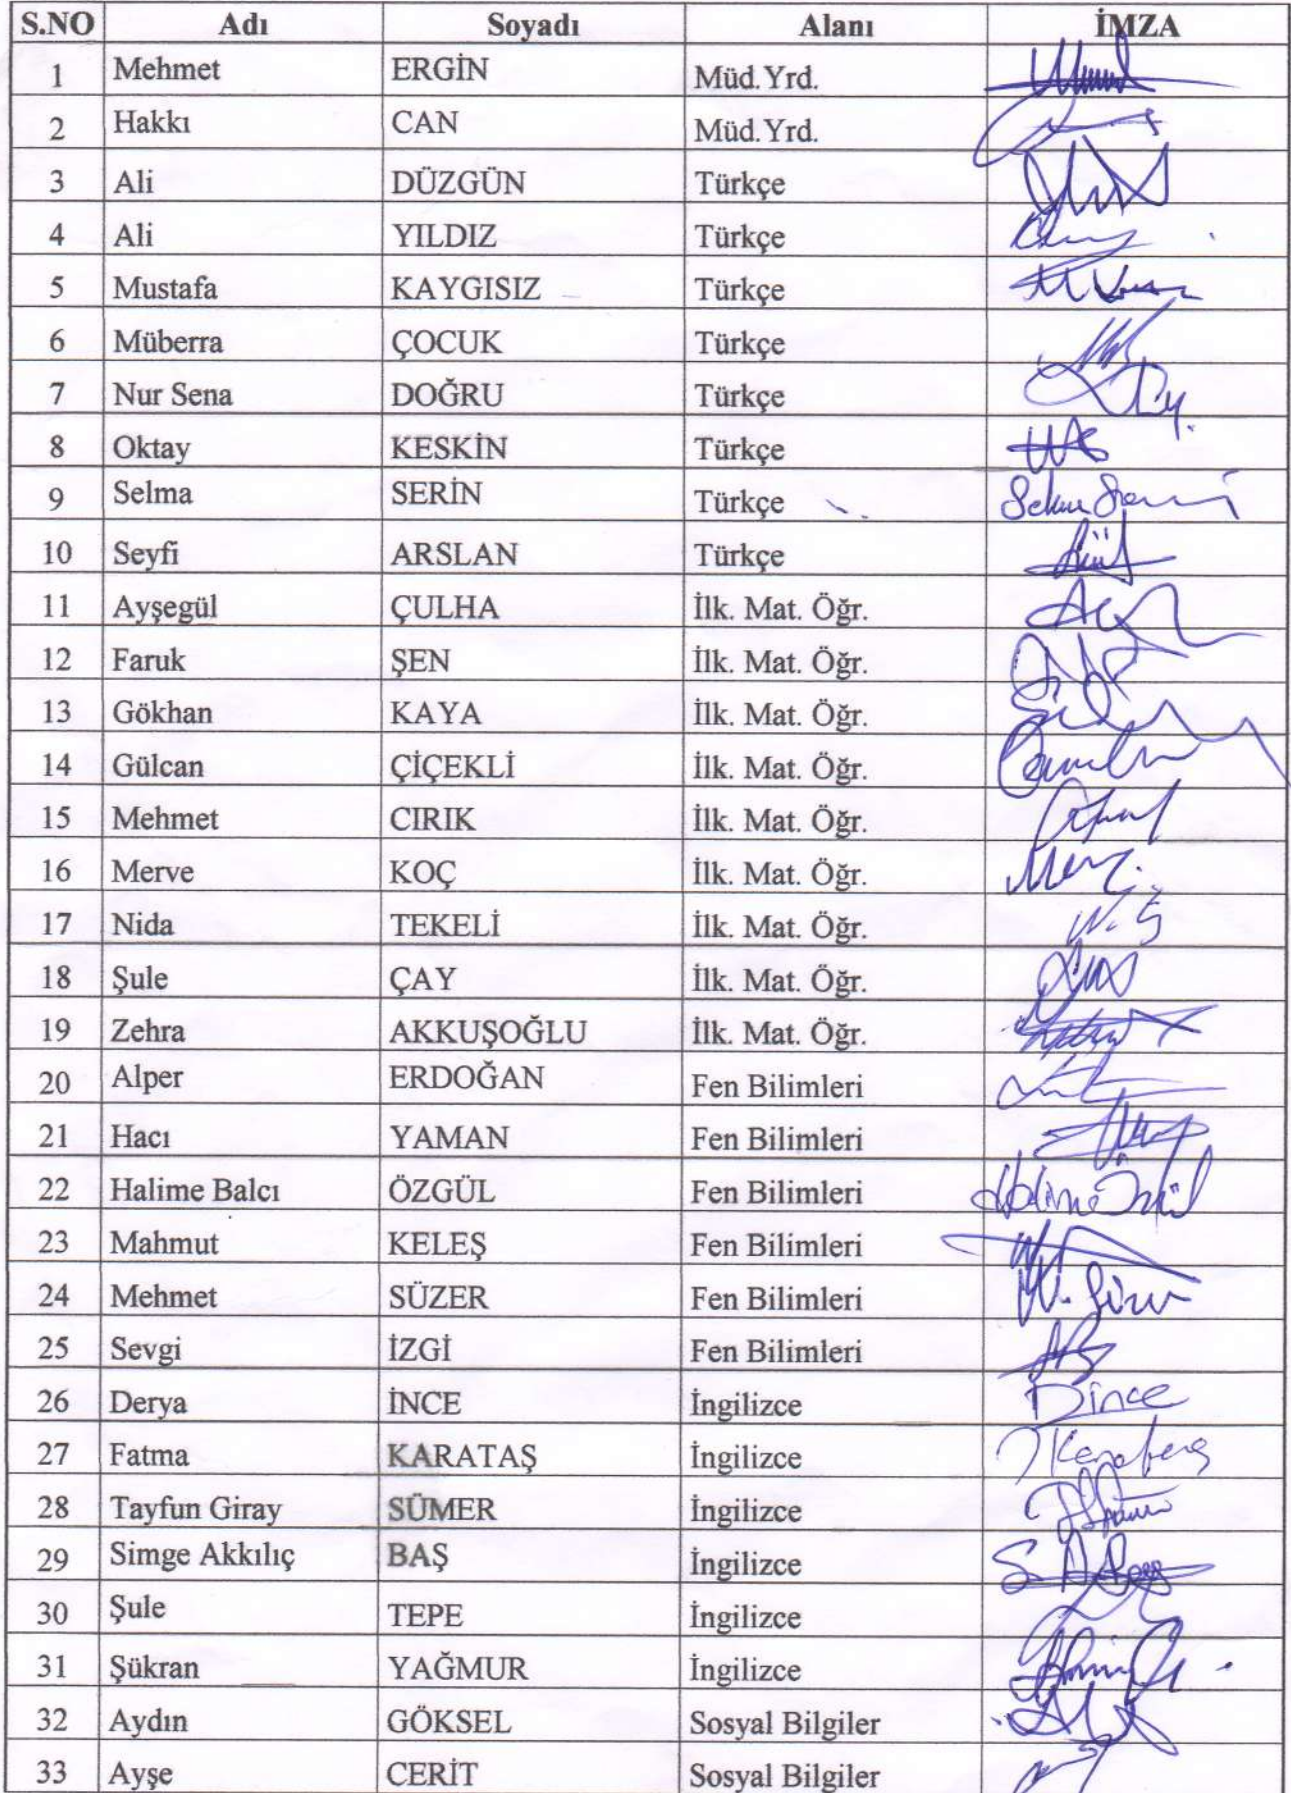 S.NO Adı Soyadı Alanı İMZA
1 Mehmet ERGİN Müd.Yrd.
2 Hakkı CAN Müd.Yrd.
3 Ali DÜZGÜN Türkçe
4 Ali YILDIZ Türkçe
5 Mustafa KAYGISIZ Türkçe
6 Müberra ÇOCUK Türkçe
7 Nur Sena DOĞRU Türkçe
8 Oktay KESKİN Türkçe
9 Selma SERİN Türkçe
10 Seyfi ARSLAN Türkçe
11 Ayşegül ÇULHA İlk. Mat. Öğr.
12 Faruk ŞEN İlk. Mat. Öğr.
13 Gökhan KAYA İlk. Mat. Öğr.
14 Gülcan ÇİÇEKLİ İlk. Mat. Öğr.
15 Mehmet CIRIK İlk. Mat. Öğr.
16 Merve KOÇ İlk. Mat. Öğr.
17 Nida TEKELİ İlk. Mat. Öğr.
18 Şule ÇAY İlk. Mat. Öğr.
19 Zehra AKKUŞOĞLU İlk. Mat. Öğr.
20 Alper ERDOĞAN Fen Bilimleri
21 Hacı YAMAN Fen Bilimleri
22 Halime Balcı ÖZGÜL Fen Bilimleri
23 Mahmut KELEŞ Fen Bilimleri
24 Mehmet SÜZER Fen Bilimleri
25 Sevgi İZGİ Fen Bilimleri
26 Derya İNCE İngilizce D ince
27 Fatma KARATAŞ İngilizce
28 Tayfun Giray SÜMER İngilizce
29 Simge Akkılıç BAŞ İngilizce
30 Şule TEPE İngilizce
31 Şükran YAĞMUR İngilizce
32 Aydın GÖKSEL Sosyal Bilgiler
33 Ayşe CERİT Sosyal Bilgiler